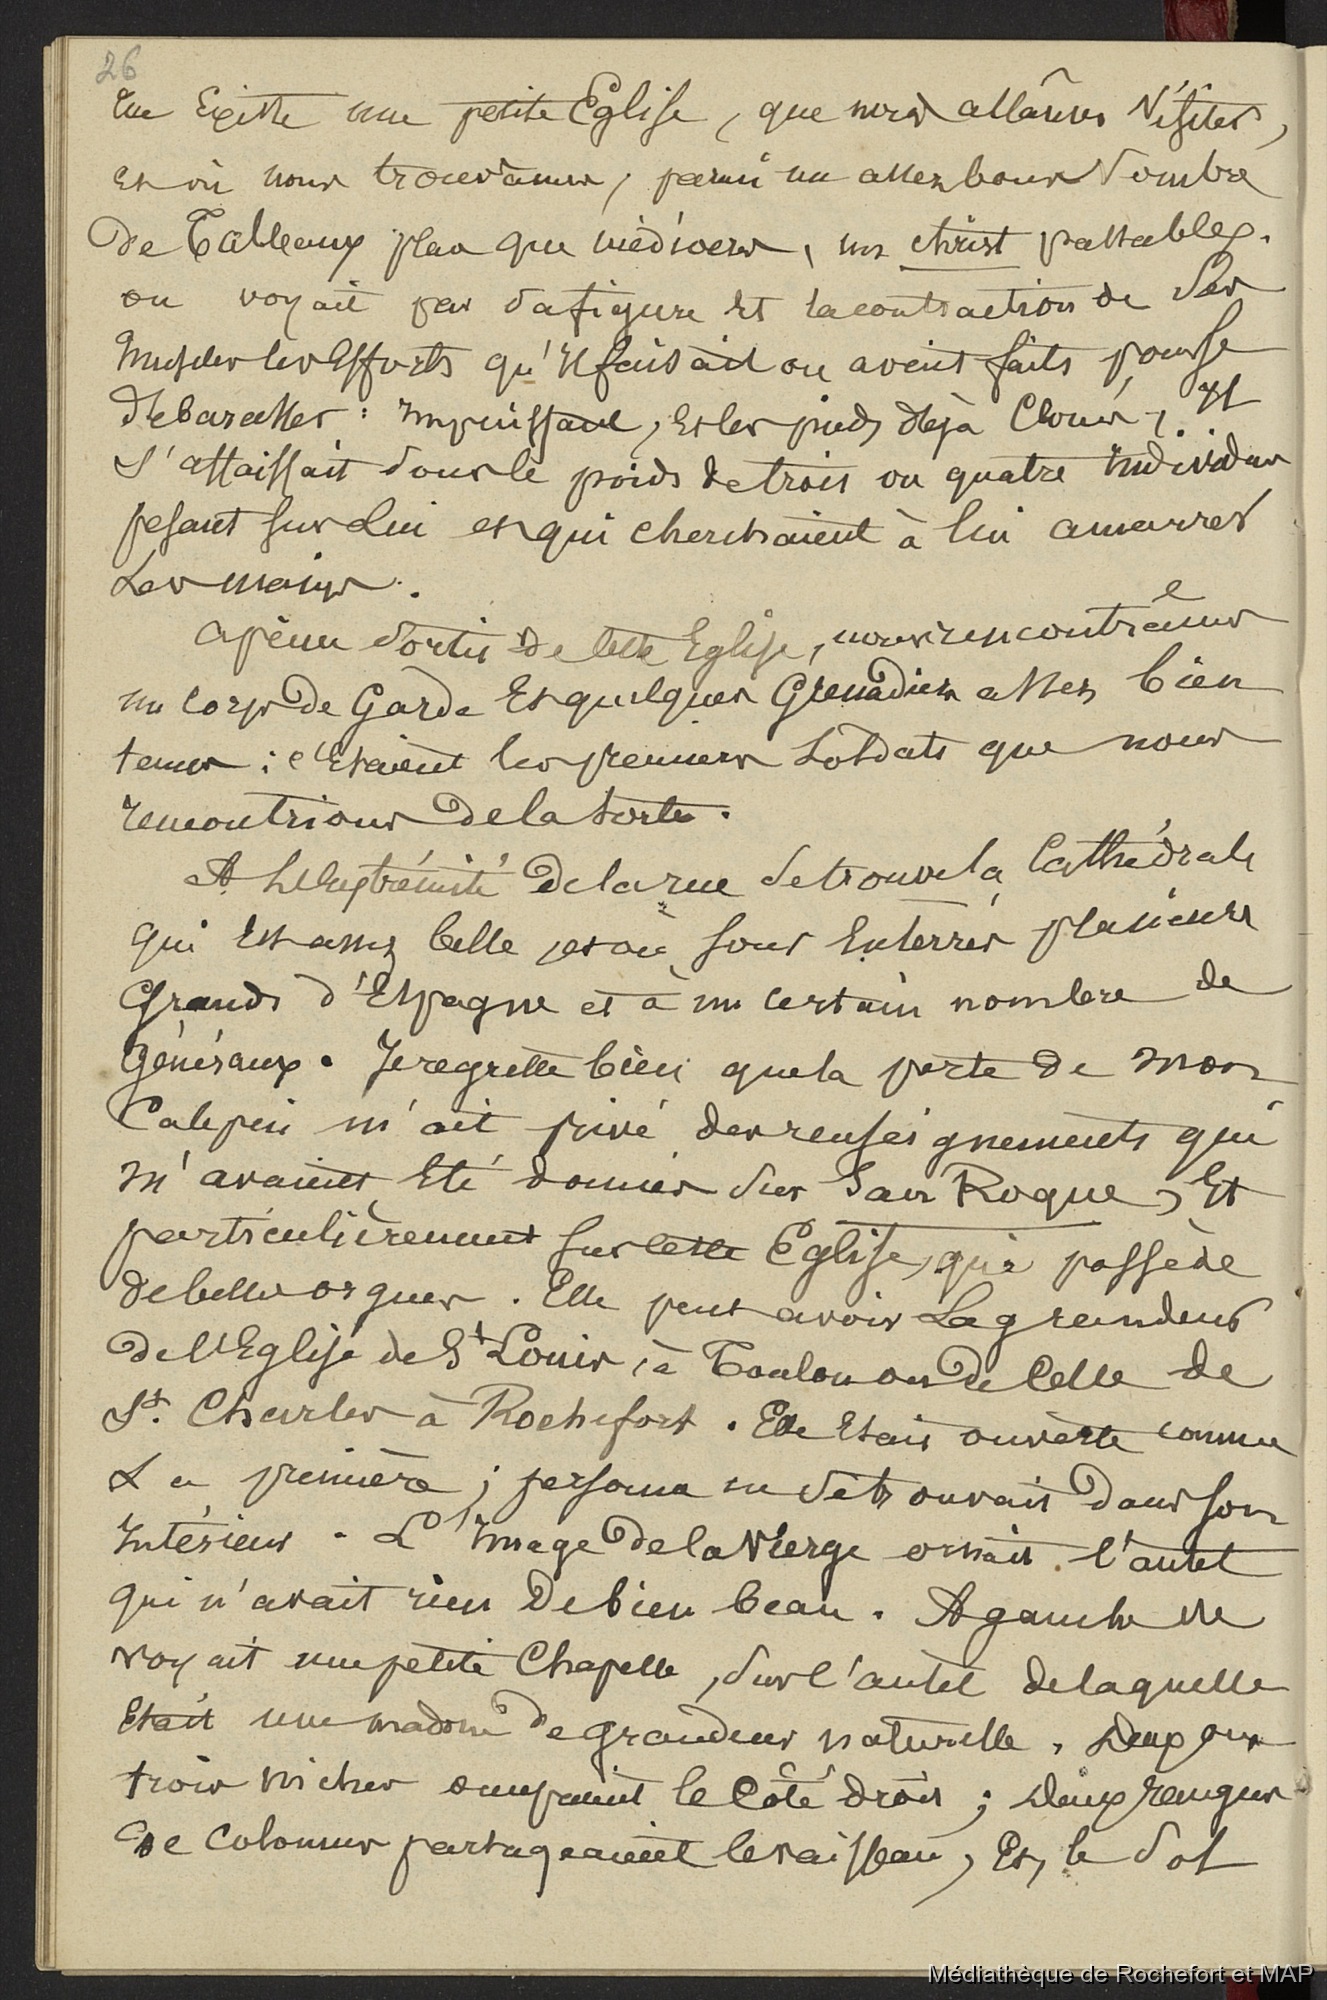 26
rue Existe une petite Eglise, que nous allâmes Visiter,
et où nous trouvâmes, parmi un assez bon Nombre
de Tableaux plus que médiocres, un christ passable.
on voyait par sa figure et la contraction de Ses
Muscles les Efforts qu'il faisait ou avait faits pour se
débarasser: Impuissant, et les pieds déjà Cloués, Il
s'affaissait sous le poids de trois ou quatre individus
pesant sur Lui et qui cherchaient à lui amarrer
Les mains.
Apeine sortis de cette Eglise, nous rencontrâmes
un Corps de Garde Et quelques Grenadiers assez bien
tenus; c'Etaient les premiers Soldats que nous
rencontrions de la sorte.
A L'Extrémité de la rue se trouve la Cathédrale
qui Est assez belle, et où sont Enterrés plusieurs
Grands d'Espagne et à un certain nombre de
Généraux. Je regrette bien que la perte de mon
Calepin m'ait privé des renseignements qui
m'avaient Eté donnés sur San Roque, Et
particulièrement sur cette Eglise, qui possède
de belles orgues. Elle peut avoir La grandeur
de l'Eglise de St Louis, à Toulon ou de Celle de
St. Charles à Rochefort. Elle Etait ouverte comme
La première; personne ne se trouvait dans son
Intérieur. L'Image de la Vierge ornait l'autel
qui n'avait rien de bien beau. A gauche se
voyait une petite Chapelle, sur l'autel de laquelle
Etait une madone de grandeur naturelle. Deux ou
trois niches occupaient le Côté droit; Deux rangées
de Colonnes partageaient le vaisseau, Et, le Sol
Médiathèque de Rochefort et MAP